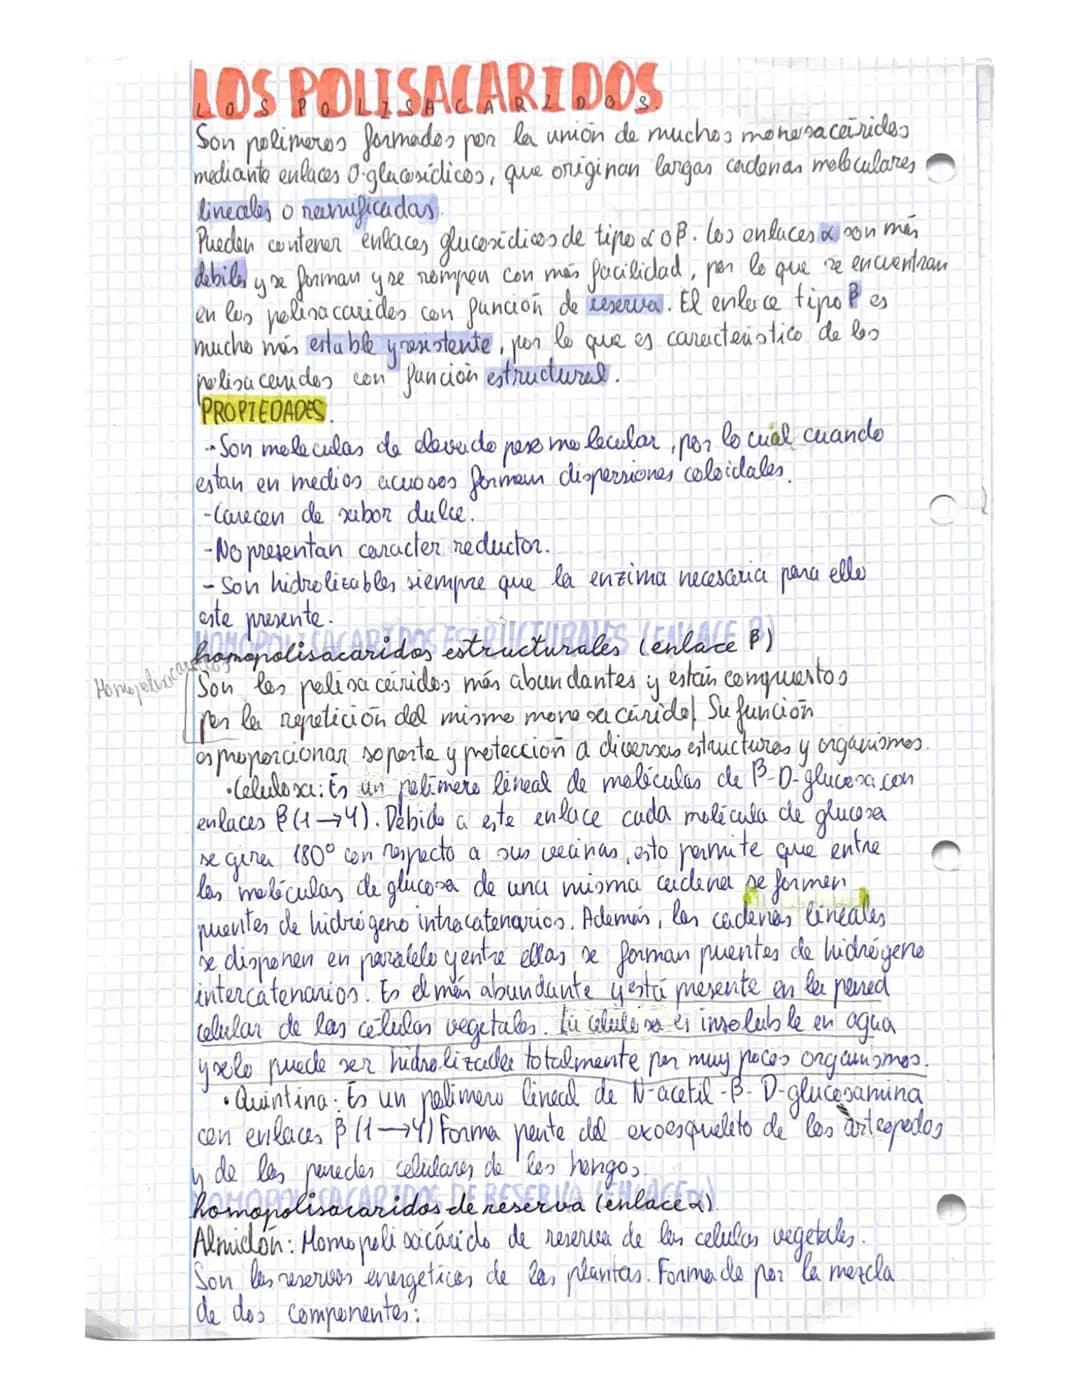 LOS POLISACARIDOS
LOS POLISACARIDOS.
Son polimeros formados por la unión de muchos monosacáridos
mediante enlaces O-glucosídicos, que originan largas cadenas moleculares
lineales o ramificadas.
Pueden contener enlaces glucosídicos de tipo α o β. Los enlaces α son más
debiles y se forman y se rompen con más facilidad, por lo que se encuentran
en los polisacaridos con función de reserva. El enlace tipo β es
mucho más estable y resistente, por lo que es característico de los
polisacaridos con función estructural.
PROPIEDADES.
-Son moleculas de elevado peso molecular, por lo cual cuando
estan en medios acuosos forman dispersiones coloidales.
-Carecen de sabor dulce.
-No presentan caracter reductor.
-Son hidrolizables siempre que la enzima necesaria para ello
este presente.
HOMOPOLISACARIDOS ESTRUCTURALES (ENLACE β)
homopolisacaridos estructurales (enlace β)
Homopolisacaridos
Son los polisacáridos más abundantes y están compuestos
por la repetición del mismo monosacárido. Su función
es proporcionar soporte y protección a diversas estructuras y organismos.
·Celulosa: Es un polímero lineal de moléculas de β-D-glucosa con
enlaces β(1→4). Debido a este enlace cada molécula de glucosa
se gira 180º con respecto a sus vecinas, esto permite que entre
las moléculas de glucosa de una misma cadena se formen
puentes de hidrógeno intracatenarios. Además, las cadenas lineales
se disponen en paralelo y entre ellas se forman puentes de hidrógeno
intercatenarios. Es el más abundante y está presente en la pared
celular de las células vegetales. La celulosa es insoluble en agua
y solo puede ser hidrolizada totalmente por muy pocos organismos.
·Quintina: Es un polímero lineal de N-acetil-β-D-glucosamina
con enlaces β(1→4) Forma parte del exoesqueleto de los artropodos
y de las paredes celulares de los hongos.
HOMOPOLISACARIDOS DE RESERVA (ENLACE α)
homopolisacaridos de reserva (enlace α).
Almidón: Homopolisacárido de reserva de las celulas vegetales.
Son las reservas energeticas de las plantas. Formado por la mezcla
de dos componentes: